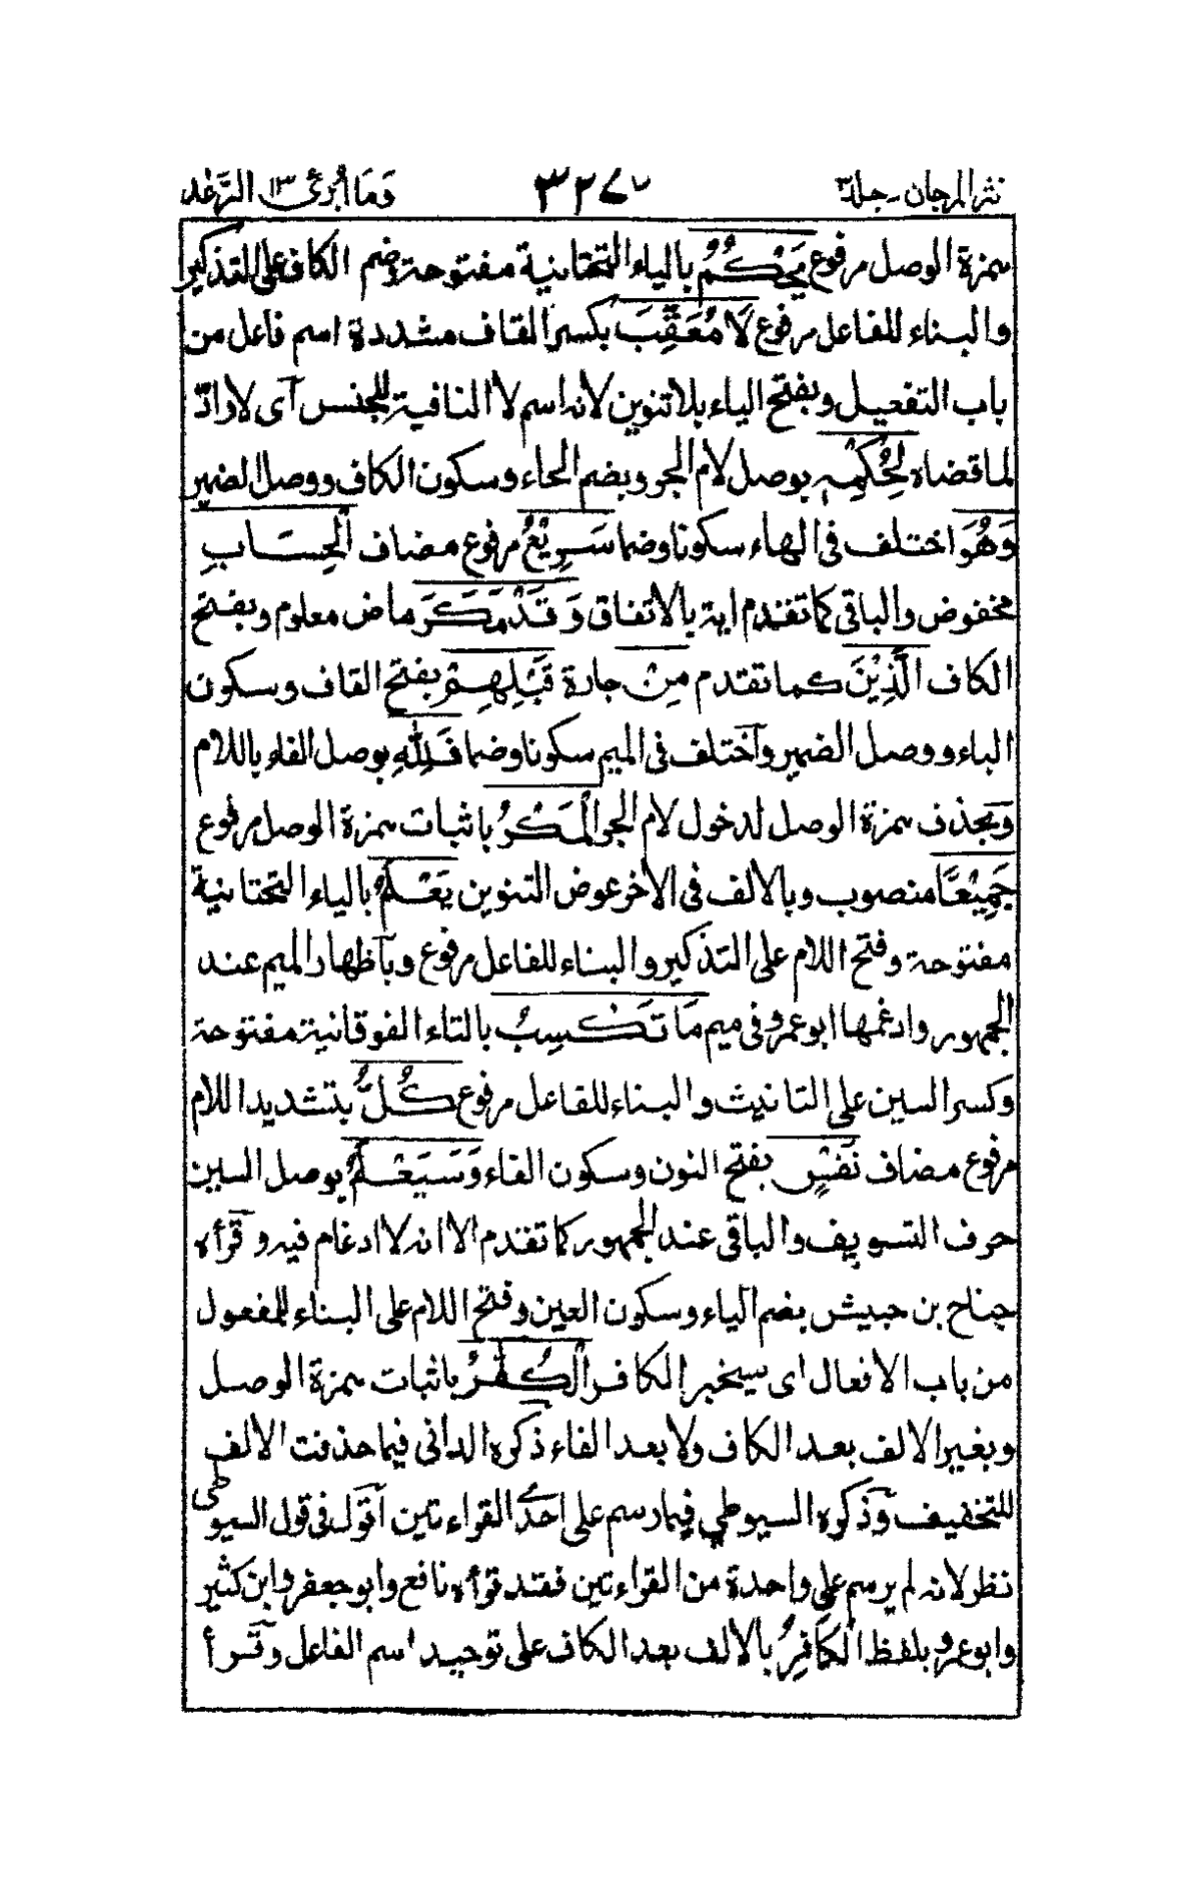 نثر المرجان ـ جلد ٣ ٣٢٧ وَمَا اُبَرِّئُ ١٣ الرَّعْد
بهمزة الوصل مرفوع يَحْكُمُ بالياء التحتانية مفتوحة وضم الكاف على التذكير
والبناء للفاعل مرفوع لَا مُعَقِّبَ بكسر القاف مشددة اسم فاعل من
باب التفعيل وبفتح الباء بلا تنوين لانه اسم لا النافية للجنس اى لا رادّ
لما قضاه لِحُكْمِهٖ بوصل لام الجر وبضم الحاء وسكون الكاف ووصل الضمير
وَهُوَ اختلف فى الهاء سكونا وضما سَرِيْعُ مرفوع مضاف اَلْحِسَابِ
مخفوض والباقى كما تقدم اية بالاتفاق وَقَدْ مَكَرَ ماض معلوم وبفتح
الكاف الَّذِيْنَ كما تقدم مِنْ جارة قَبْلِهِمْ بفتح القاف وسكون
الباء ووصل الضمير واختلف فى الميم سكونا وضما فَلِلّٰهِ بوصل الفاء باللام
وبحذف همزة الوصل لدخول لام الجر الْمَكْرُ باثبات همزة الوصل مرفوع
جَمِيْعًا منصوب وبالالف فى الاخر عوض التنوين يَعْلَمُ بالياء التحتانية
مفتوحة وفتح اللام على التذكير والبناء للفاعل مرفوع وباظهار الميم عند
الجمهور وادغمها ابو عمرو فى ميم مَا تَكْسِبُ بالتاء الفوقانية مفتوحة
وكسر السين على التانيث والبناء للفاعل مرفوع كُلُّ بتشديد اللام
مرفوع مضاف نَفْسٍ بفتح النون وسكون الفاء وَسَيَعْلَمُ بوصل السين
حرف التسويف والباقى عند الجمهور كما تقدم الا انه لا ادغام فيه وقرأه
جناح بن حبيش بضم الياء وسكون العين وفتح اللام على البناء للمفعول
من باب الافعال اى سيخبر الكافر الْكُفّٰرُ باثبات همزة الوصل
وبغير الالف بعد الكاف ولا بعد الفاء ذكره الدانى فيما حذفت الالف
للتخفيف وذكره السيوطي فيما رسم على احدى القراءتين اقول فى قول السيوطى
نظر لانه لم يرسم على واحدة من القراءتين فقد قرأه نافع وابو جعفر وابن كثير
وابو عمرو بلفظ الْكَافِرُ بالالف بعد الكاف على توحيد اسم الفاعل وقرأ